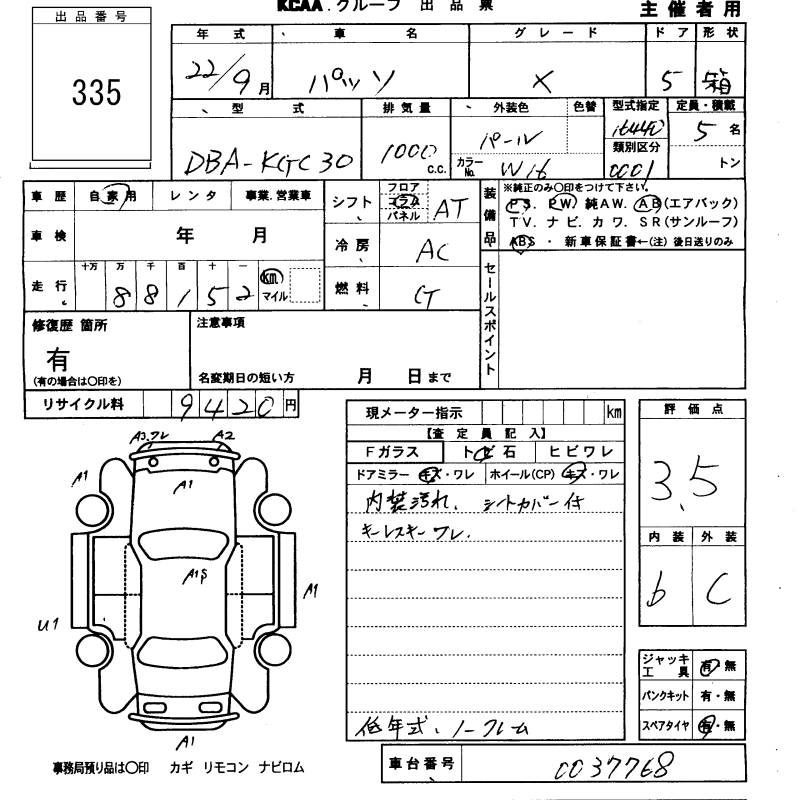 KCAA.グループ 出品票 主催者用
出品番号
335
年式 車名 グレード ドア 形状
22/9月 パッソ X 5 箱
型式 排気量 外装色 色替 型式指定 定員・積載
DBA-KGC30 1000c.c. パール 16440 5名
カラーNo. W16 類別区分 0001 トン
車歴 自家用 レンタ 事業.営業車
シフト フロア コラム パネル AT
装備品 ※純正のみ〇印をつけて下さい。
PS. PW. 純AW. AB(エアバック)
TV. ナビ. カワ. SR(サンルーフ)
ABS・新車保証書←(注)後日送りのみ
車検 年 月
冷房 AC
走行 十万 万 千 百 十 一
88152 km マイル
燃料
セールスポイント
修復歴 箇所
有
(有の場合は〇印を)
注意事項
名変期日の短い方 月 日まで
リサイクル料 9420円
現メーター指示 km
【査定員記入】
Fガラス トビ石 ヒビワレ
ドアミラー キズ・ワレ ホイール(CP) キズ・ワレ
内装汚れ、シートカバー付
キーレスキーワレ.
低年式、ノークレーム
評価点
3.5
内装 外装
b C
ジャッキ工具 有・無
パンクキット 有・無
スペアタイヤ 有・無
A3.ワレ A2
A1
A1
A1S
A1
U1
A1
事務局預り品は〇印 カギ リモコン ナビロム
車台番号 0037768